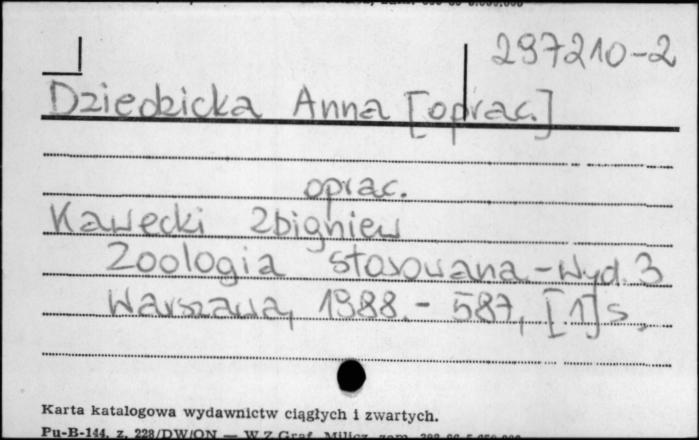 297210-2
Dziedzicka Anna [oprac.]
oprac.
Kawecki Zbigniew
Zoologia stosowana.-Wyd. 3
Warszawa, 1988.- 587, [1] s.
Karta katalogowa wydawnictw ciągłych i zwartych.
Pu-B-144, z. 228/DW/ON — W.Z.Graf. Milicz, zam.